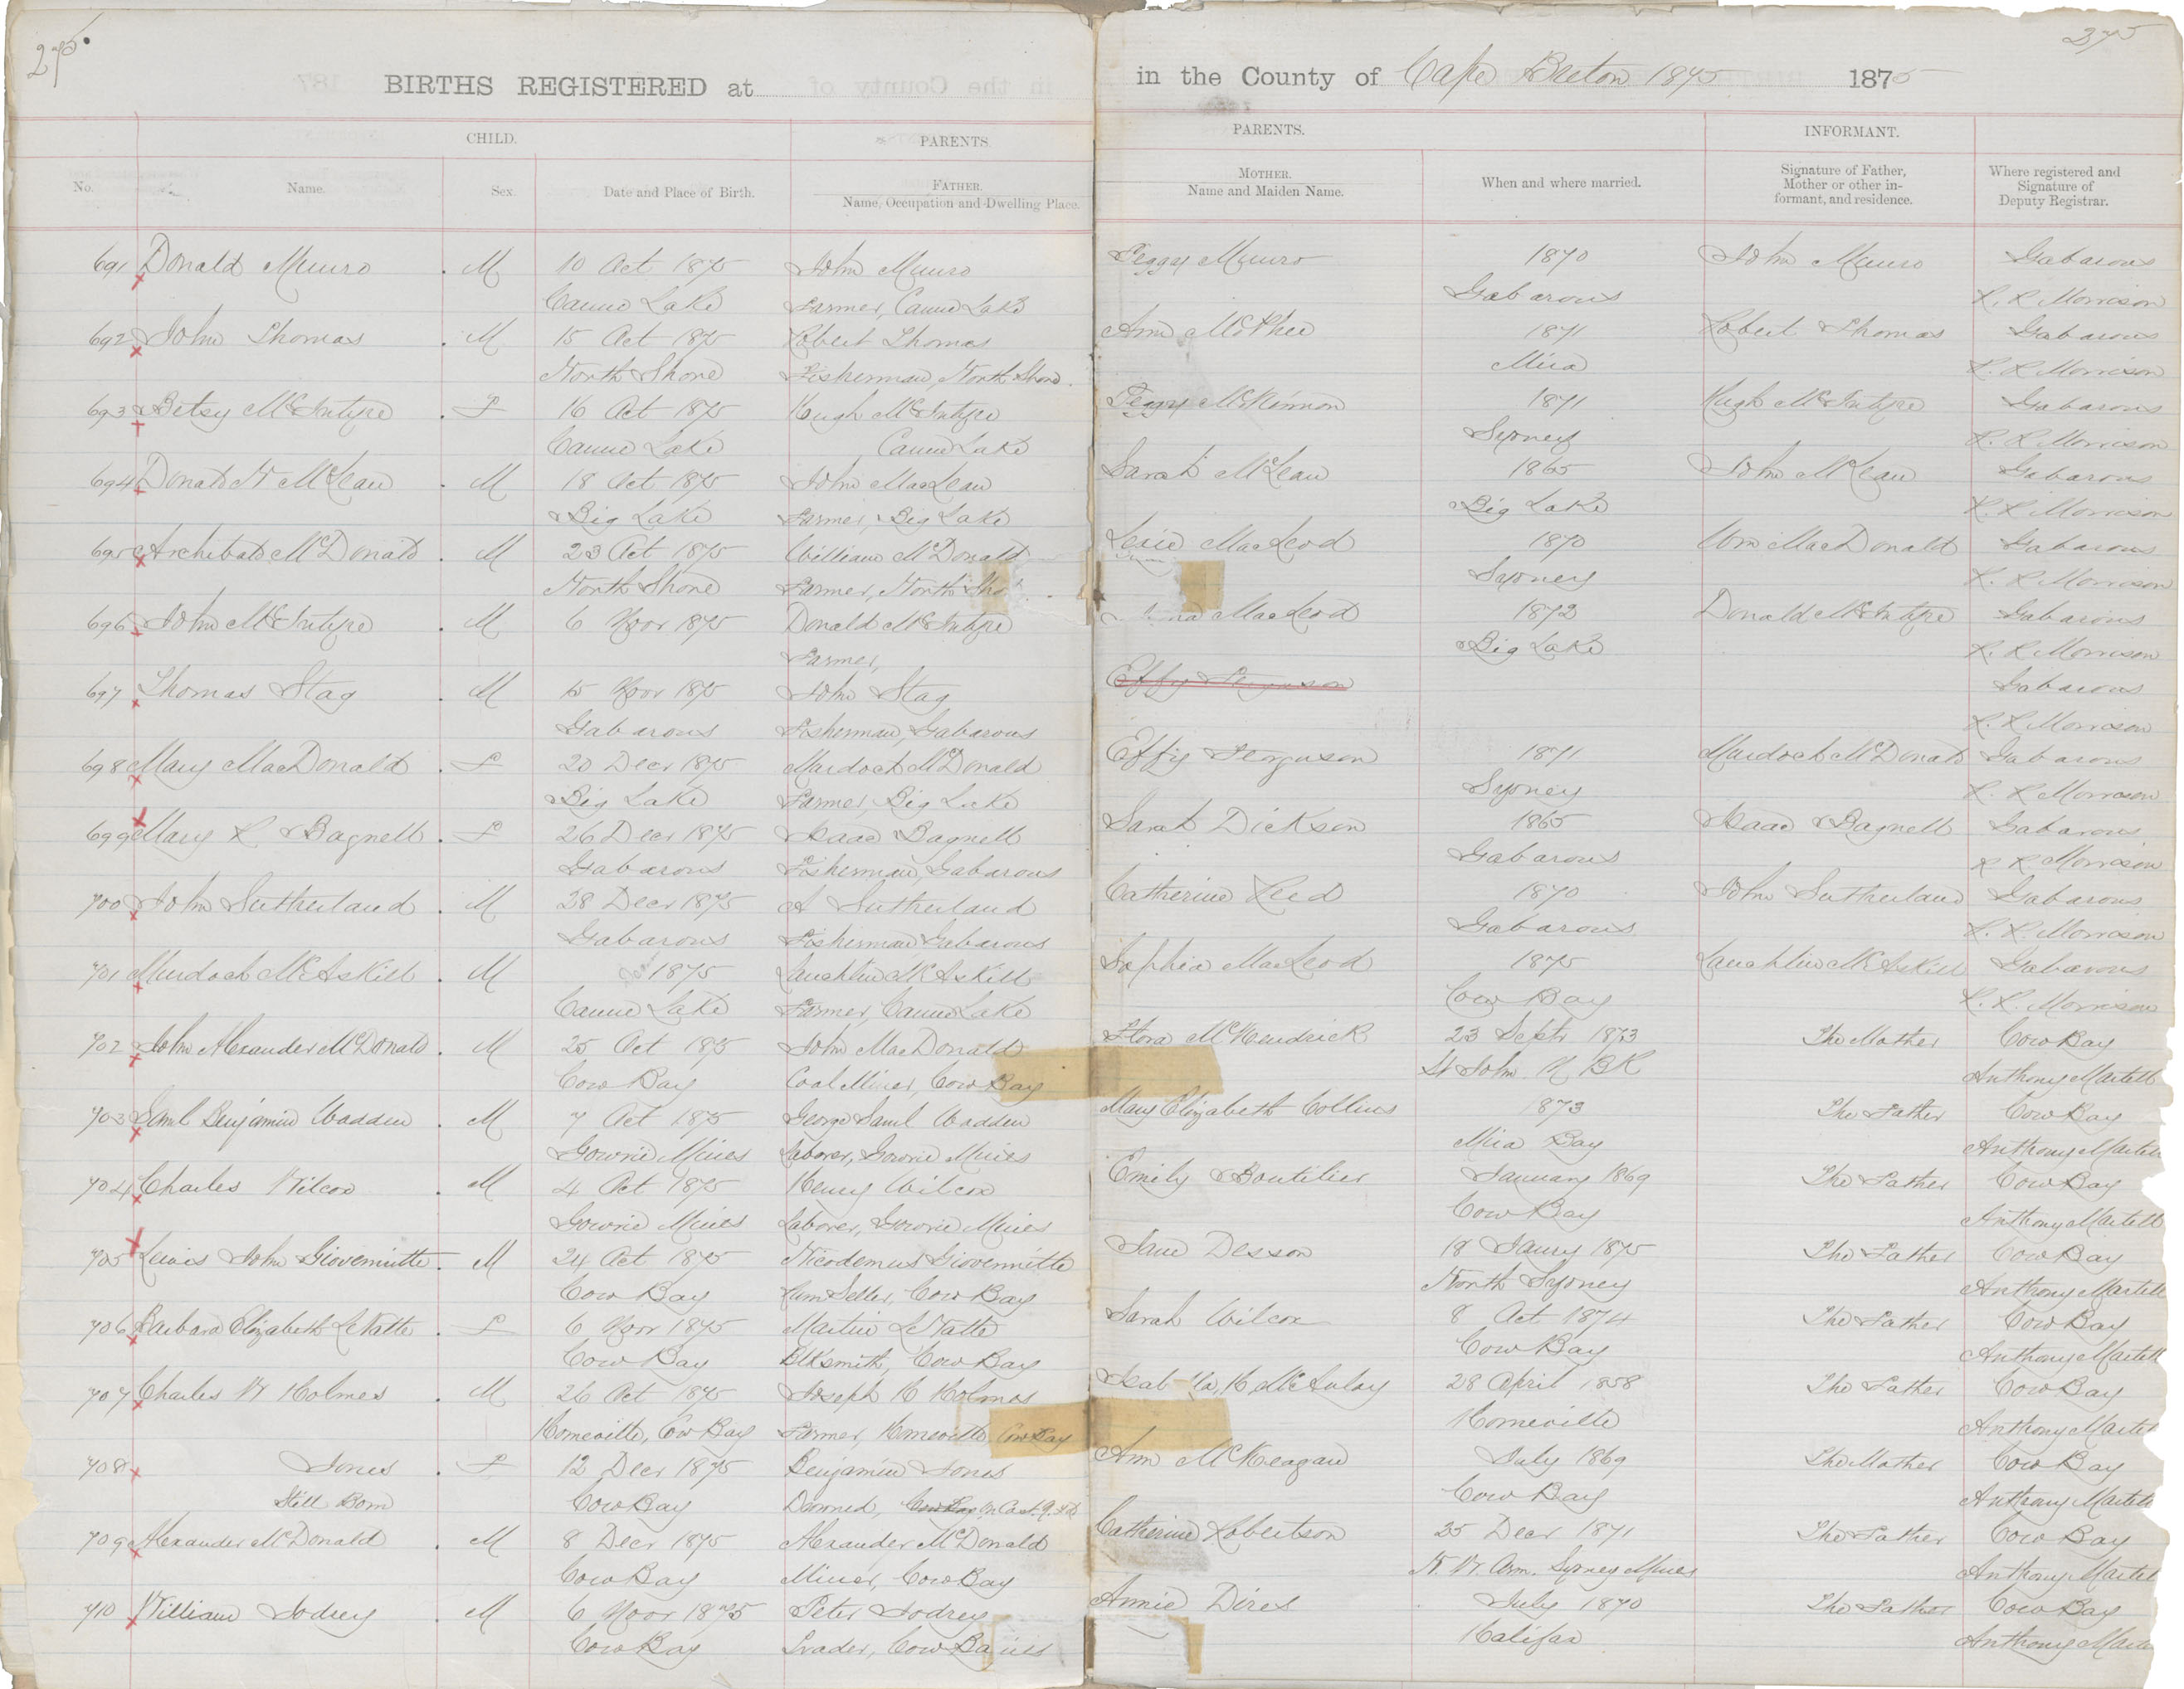 275
BIRTHS REGISTERED at
CHILD.
PARENTS.
No.
Name.
Sex.
Date and Place of Birth.
FATHER.
Name, Occupation and Dwelling Place.
691 Donald Munro . M 10 Oct 1875 John Munro
Canne Lake Farmer, Canne Lake
692 John Thomas . M 15 Oct 1875 Robert Thomas
North Shore Fisherman, North Shore.
693 Betsy McIntyre . F 16 Oct 1875 Hugh McIntyre
Canne Lake Canne Lake
694 Donald N McLean . M 18 Oct 1875 John MacLean
Big Lake Farmer, Big Lake
695 Archibald McDonald . M 23 Oct 1875 William McDonald
North Shore Farmer, North Sho
696 John McIntyre . M 6 Novr 1875 Donald McIntyre
Farmer,
697 Thomas Stag . M 15 Novr 1875 John Stag
Gabarous Fisherman, Gabarous
698 Mary MacDonald . F 20 Decr 1875 Murdoch McDonald
Big Lake Farmer, Big Lake
699 Mary R Bagnell . F 26 Decr 1875 Isaac Bagnell
Gabarous Fisherman, Gabarous
700 John Sutherland . M 28 Decr 1875 A Sutherland
Gabarous Fisherman, Gabarous
701 Murdoch McAskill . M 1875 Lauchlin McAskill
Canne Lake Farmer, Canne Lake
702 John Alexander McDonald . M 25 Oct 1875 John MacDonald
Cow Bay Coal Miner, Cow Bay
703 Saml Benjamin Wadden . M 7 Oct 1875 George Saml Wadden
Gowrie Mines Laborer, Gowrie Mines
704 Charles Wilcox . M 4 Oct 1875 Henry Wilcox
Gowrie Mines Laborer, Gowrie Mines
705 Lewis John Giovennitte . M 24 Oct 1875 Nicodemus Giovennitte
Cow Bay Rum Seller, Cow Bay
706 Barbara Elizabeth LeNatte . F 6 Novr 1875 Martin LeNatte
Cow Bay Blksmith, Cow Bay
707 Charles W Holmes . M 26 Oct 1875 Joseph H Holmes
Homeville, Cow Bay Farmer, Homeville Cow Bay
708 Jones . F 12 Decr 1875 Benjamin Jones
Still Born Cow Bay Drowned, Cow Bay
709 Alexander McDonald . M 8 Decr 1875 Alexander McDonald
Cow Bay Miner, Cow Bay
710 William Jodrey M 6 Novr 1875 Peter Jodrey
Cow Bay Trader, Cow Ba
275
in the County of Cape Breton 1875 1875
PARENTS.
INFORMANT.
MOTHER.
Name and Maiden Name.
When and where married.
Signature of Father,
Mother or other in-
formant, and residence.
Where registered and
Signature of
Deputy Registrar.
Peggy Munro 1870 John Munro Gabarous
Gabarous R. R Morrison
Ann McPhee 1871 Robert Thomas Gabarous
Mira R. R Morrison
Peggy McKinnon 1871 Hugh McIntyre Gabarous
Sydney R. R Morrison
Sarah McLean 1865 John McLean Gabarous
Big Lake R. R Morrison
Lexie MacLeod 1870 Wm MacDonald Gabarous
Sydney R. R Morrison
MacLeod 1872 Donald McIntyre Gabarous
Big Lake R. R Morrison
Effy Ferguson Gabarous
R. R Morrison
Effy Ferguson 1871 Murdoch McDonald Gabarous
Sydney R. R Morrison
Sarah Dickson 1865 Isaac Bagnell Gabarous
Gabarous R R Morrison
Catherine Reed 1870 John Sutherland Gabarous
Gabarous R. R. Morrison
Sophia MacLeod 1875 Lauchlin McAskill Gabarous
Cow Bay R. R. Morrison
Flora McKendrick 23 Septr 1873 The Mother Cow Bay
St John N BK Anthony Martell
Mary Elizabeth Collins 1873 The Father Cow Bay
Mira Bay Anthony Martell
Emily Boutilier January 1869 The Father Cow Bay
Cow Bay Anthony Martell
Jane Desson 18 Jany 1875 The Father Cow Bay
North Sydney Anthony Martell
Sarah Wilcox 8 Oct 1874 The Father Cow Bay
Cow Bay Anthony Martell
H McAulay 28 April 1858 The Father Cow Bay
Homeville Anthony Martel
Ann McKeagan July 1869 The Mother Cow Bay
Cow Bay Anthony Martell
Catherine Robertson 25 Decr 1871 The Father Cow Bay
N. W. Arm. Sydney Mines Anthony Martel
Annie Dires July 1870 The Father Cow Bay
Halifax Anthony Mar